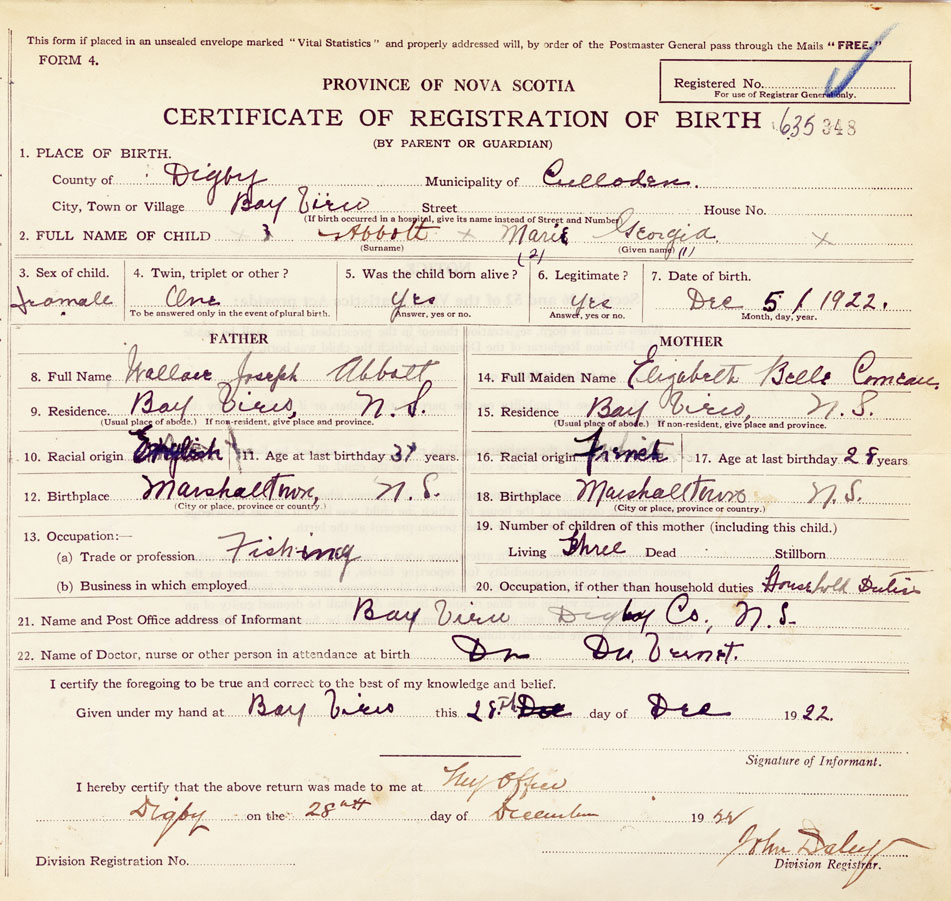 This form if placed in an unsealed envelope marked "Vital Statistics" and properly addressed will, by order of the Postmaster General pass through the Mails "FREE."
FORM 4.
PROVINCE OF NOVA SCOTIA
Registered No.
For use of Registrar General only.
CERTIFICATE OF REGISTRATION OF BIRTH 635 348
(BY PARENT OR GUARDIAN)
1. PLACE OF BIRTH.
County of Digby Municipality of Culloden.
City, Town or Village Bay View Street House No.
(If birth occurred in a hospital, give its name instead of Street and Number)
2. FULL NAME OF CHILD x 3 Abbott x Marie Georgia x
(Surname) (2) (Given name) (1)
3. Sex of child. 4. Twin, triplet or other? 5. Was the child born alive? 6. Legitimate? 7. Date of birth.
One Yes Yes Dec 5 / 1922.
To be answered only in the event of plural birth. Answer, yes or no. Answer, yes or no. Month, day, year.
FATHER MOTHER
8. Full Name Wallace Joseph Abbott 14. Full Maiden Name Elizabeth Belle Comeau
9. Residence. Bay View, N.S. 15. Residence Bay View, N.S.
(Usual place of abode.) If non-resident, give place and province. (Usual place of abode.) If non-resident, give place and province.
10. Racial origin English 11. Age at last birthday years. 16. Racial origin French 17. Age at last birthday 28 years
12. Birthplace Marshalltown, N.S. 18. Birthplace Marshalltown N.S.
(City or place, province or country.) (City or place, province or country.)
13. Occupation:— 19. Number of children of this mother (including this child.)
(a) Trade or profession Fishing Living Three Dead Stillborn
(b) Business in which employed 20. Occupation, if other than household duties Household Duties
21. Name and Post Office address of Informant Bay View Digby Co., N.S.
22. Name of Doctor, nurse or other person in attendance at birth Dr Du Vernet.
I certify the foregoing to be true and correct to the best of my knowledge and belief.
Given under my hand at Bay View this 28th Dec day of Dec 1922.
Signature of Informant.
I hereby certify that the above return was made to me at My Office
Digby on the 28th day of December 1922
John Daley
Division Registration No. Division Registrar.